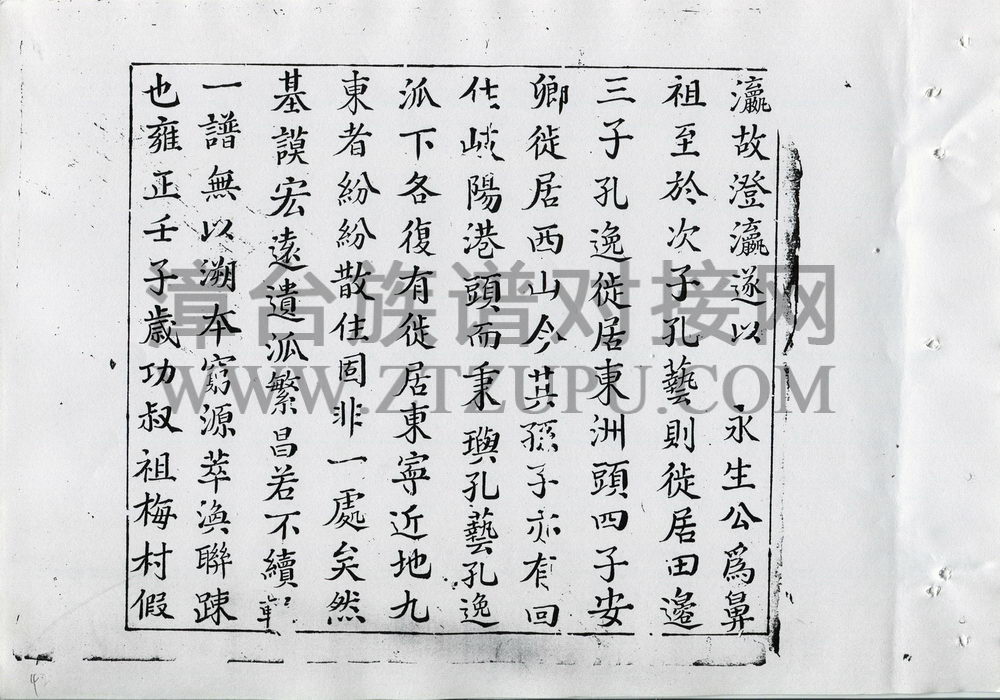 瀛故澄瀛遂以 永生公爲鼻
祖至於次子孔藝則徙居田邊
三子孔逸徙居東洲頭四子安
卿徙居西山今其孫子亦有回
住岐陽港頭而秉璵孔藝孔逸
派下各復有徙居東寧近地九
東者紛紛散住固非一處矣然
基謨宏遠遺派繁昌若不續
一譜無以溯本窮源萃渙聯踈
也雍正壬子歲功叔祖梅村假
漳台族谱对接网
WWW.ZTZUPU.COM